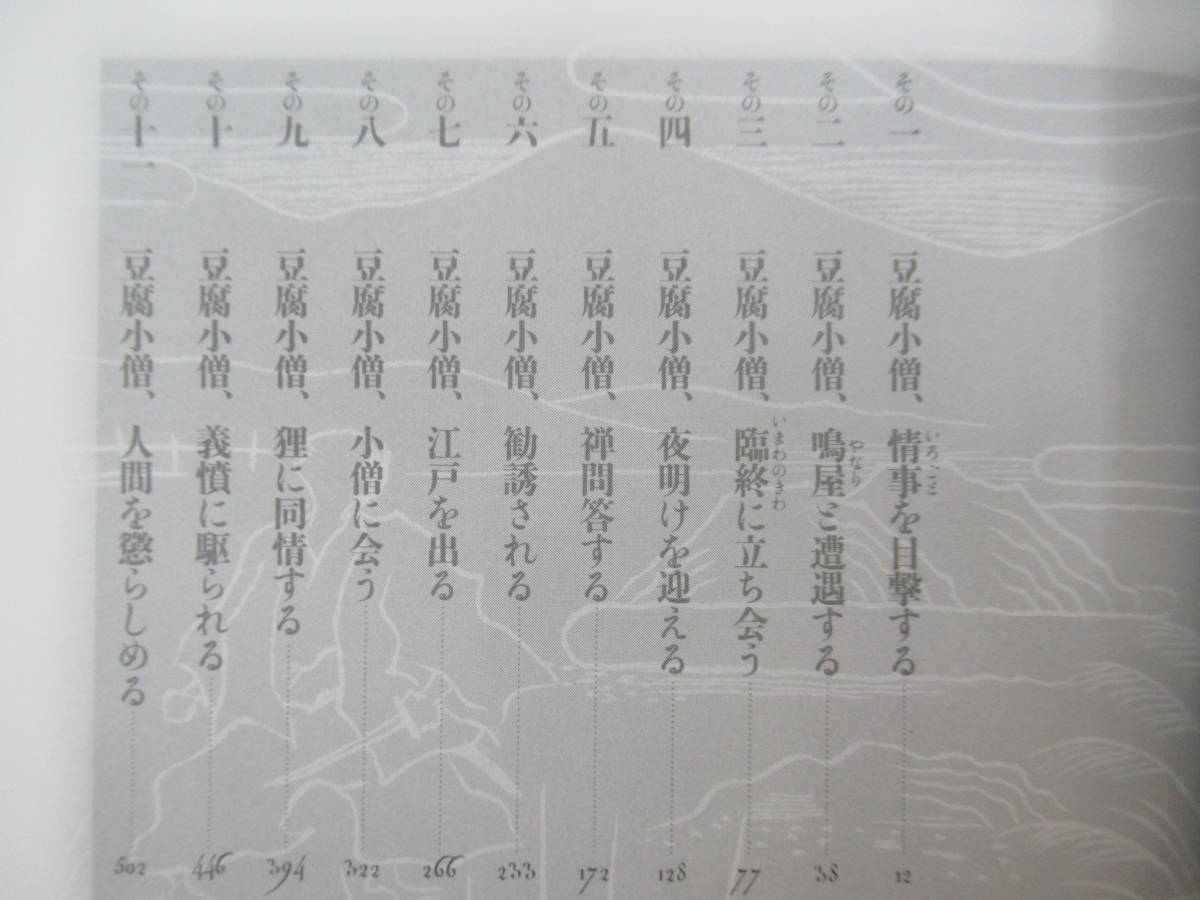 その一 豆腐小僧、情事を目撃する 12
いろごと
その二 豆腐小僧、鳴屋と遭遇する 38
やなり
その三 豆腐小僧、臨終に立ち会う 77
いまわのきわ
その四 豆腐小僧、夜明けを迎える 128
その五 豆腐小僧、禅問答する 172
その六 豆腐小僧、勧誘される 233
その七 豆腐小僧、江戸を出る 266
その八 豆腐小僧、小僧に会う 322
その九 豆腐小僧、狸に同情する 394
その十 豆腐小僧、義憤に駆られる 446
その十一 豆腐小僧、人間を懲らしめる 502